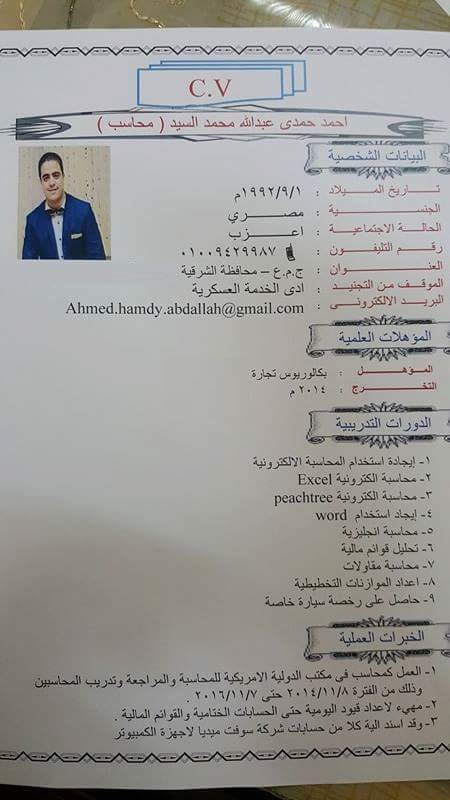 C.V
احمد حمدى عبدالله محمد السيد ( محاسب )
البيانات الشخصية
تاريخ الميلاد : ١٩٩٢/٩/١م
الجنسية : مصري
الحالة الاجتماعية : اعزب
رقم التليفون : ٠١٠٠٩٤٢٩٩٨٧
العنوان : ج.م.ع – محافظة الشرقية
الموقف من التجنيد : ادى الخدمة العسكرية
البريد الالكترونى : Ahmed.hamdy.abdallah@gmail.com
المؤهلات العلمية
المؤهل : بكالوريوس تجارة
التخرج : ٢٠١٤ م
الدورات التدريبية
١- إيجادة استخدام المحاسبة الالكترونية
٢- محاسبة الكترونية Excel
٣- محاسبة الكترونية peachtree
٤- إيجاد استخدام word
٥- محاسبة انجليزية
٦- تحليل قوائم مالية
٧- محاسبة مقاولات
٨- اعداد الموازنات التخطيطية
٩- حاصل على رخصة سيارة خاصة
الخبرات العملية
١- العمل كمحاسب فى مكتب الدولية الامريكية للمحاسبة والمراجعة وتدريب المحاسبين
وذلك من الفترة ٢٠١٤/١١/٨ حتى ٢٠١٦/١١/٧ .
٢- مهيء لاعداد قيود اليومية حتى الحسابات الختامية والقوائم المالية .
٣- وقد اسند الية كلا من حسابات شركة سوفت ميديا لاجهزة الكمبيوتر